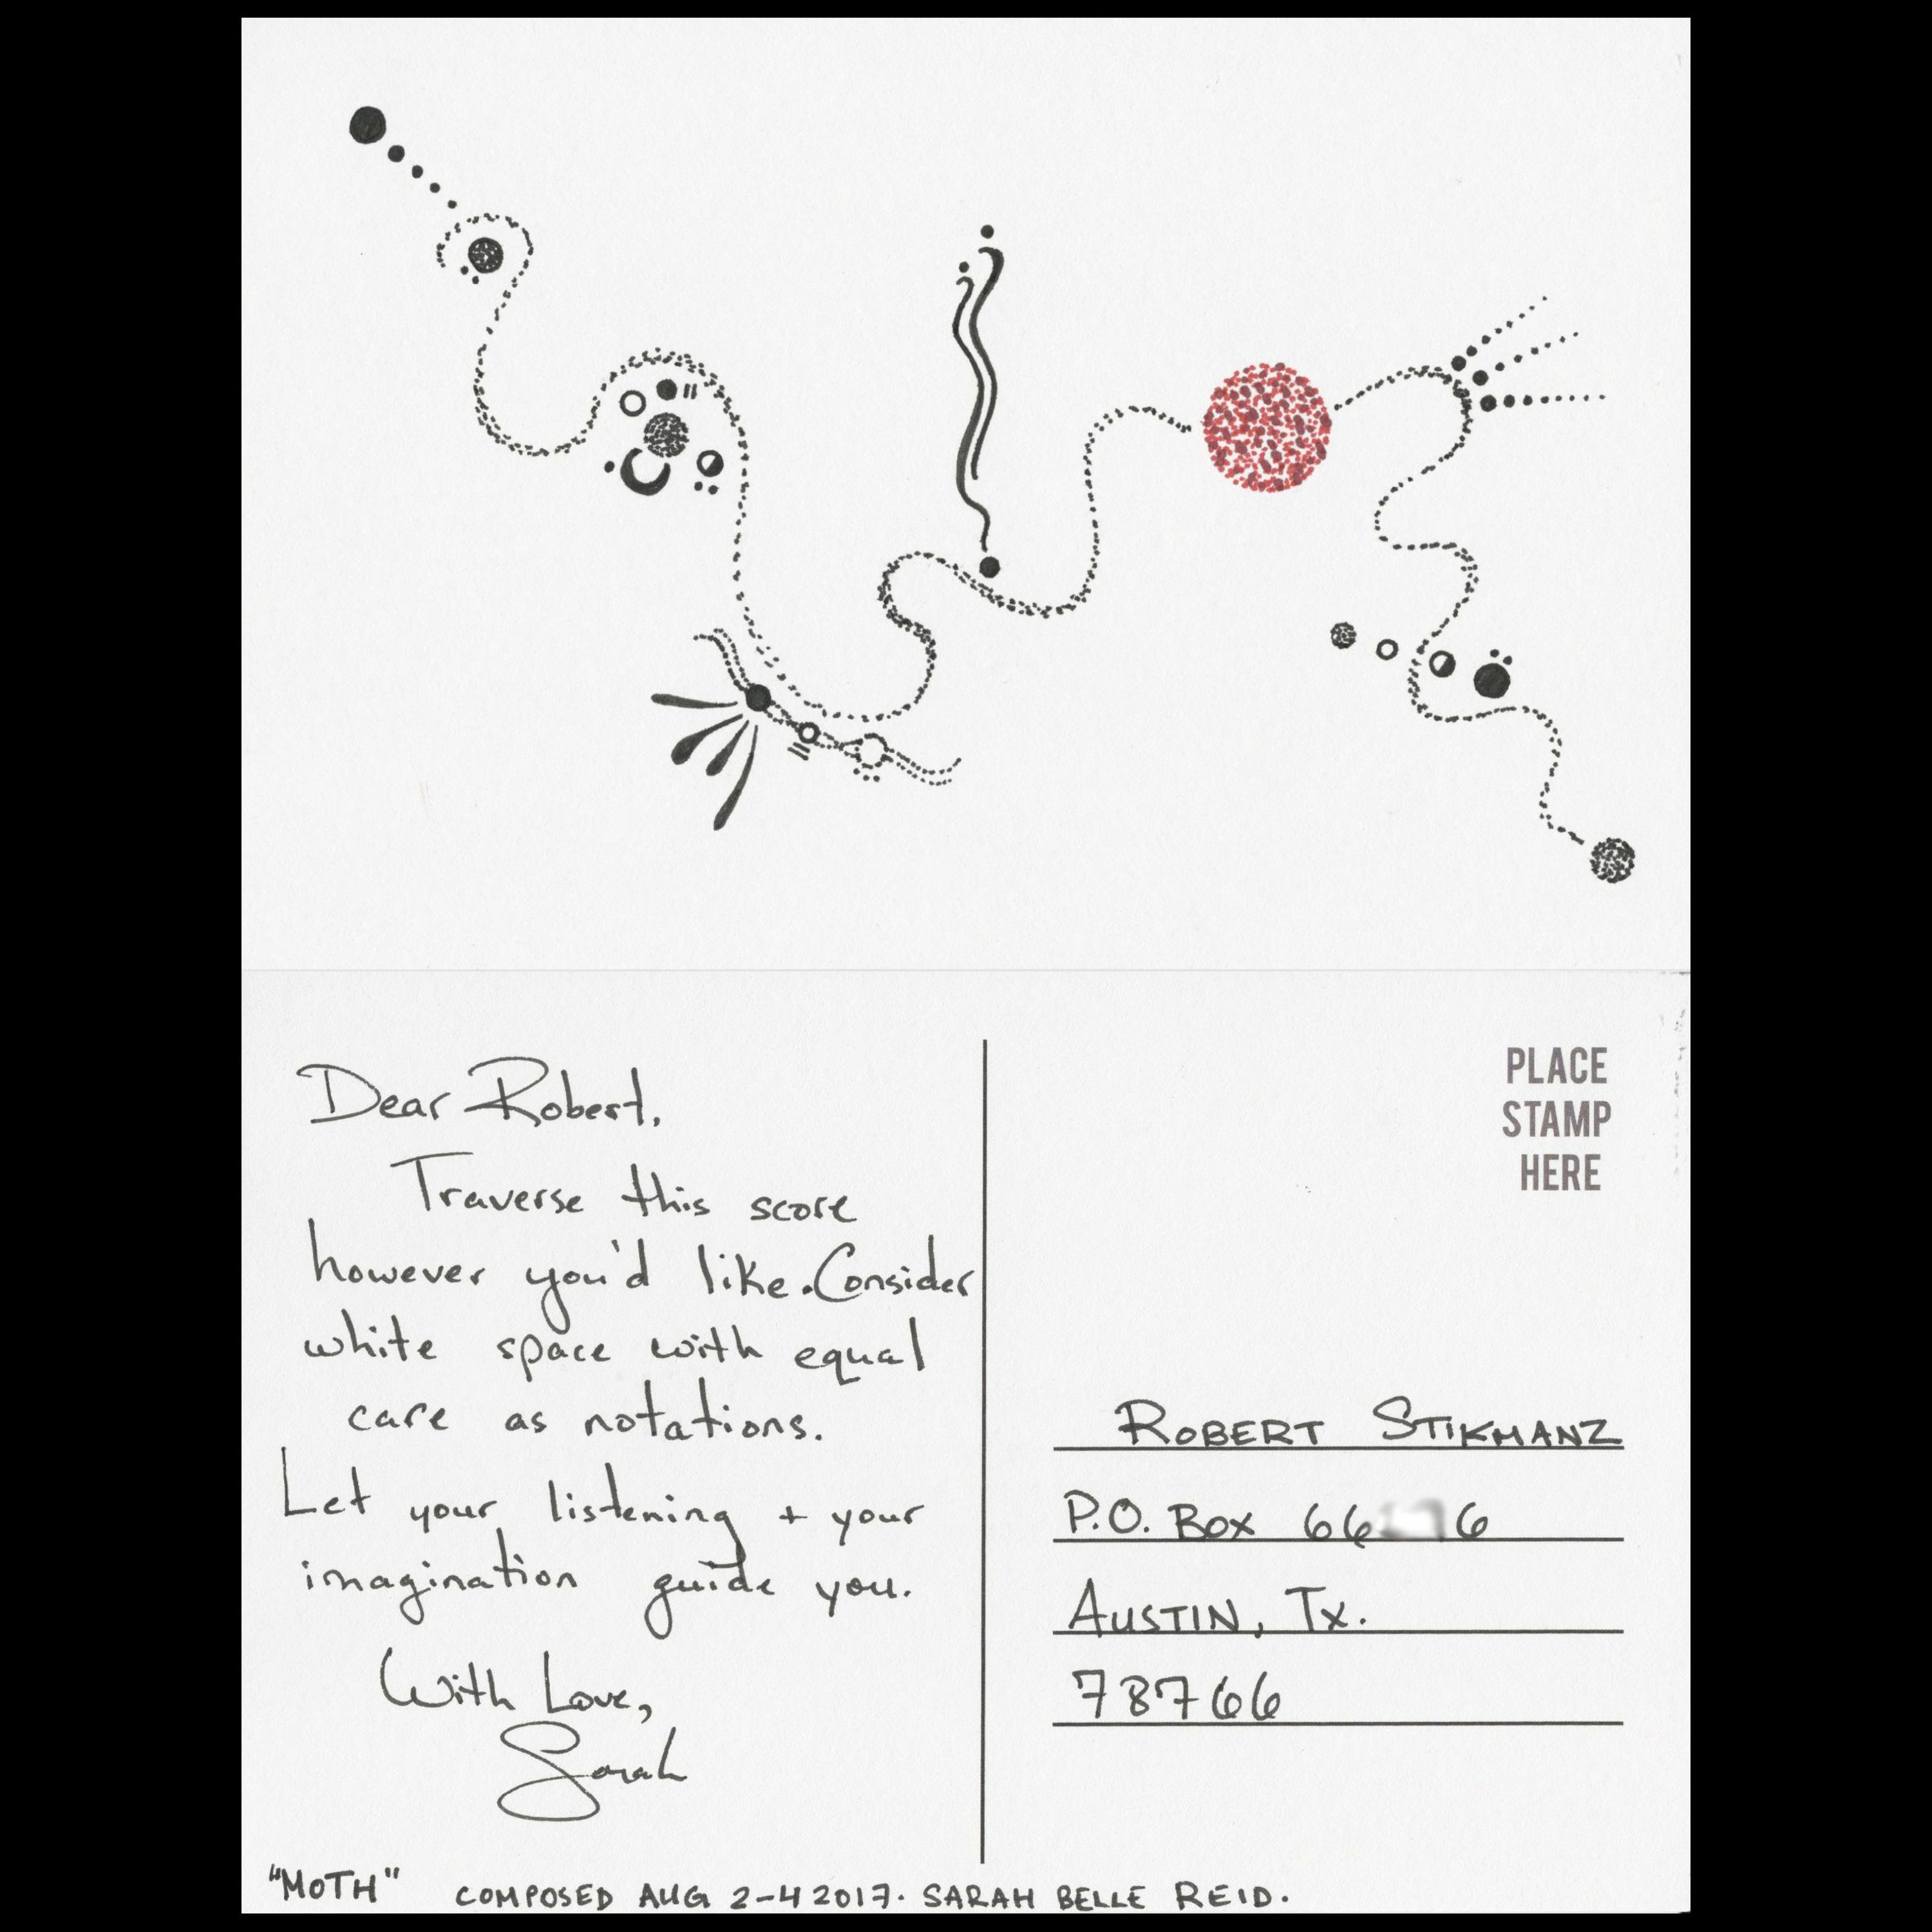 Dear Robert,
Traverse this score
however you'd like. Consider
white space with equal
care as notations.
Let your listening + your
imagination guide you.
With Love,
Sarah
"MOTH" COMPOSED AUG 2-4 2017. SARAH BELLE REID.
PLACE
STAMP
HERE
ROBERT STIKMANZ
P.O. BOX 66 6
AUSTIN, TX.
78766